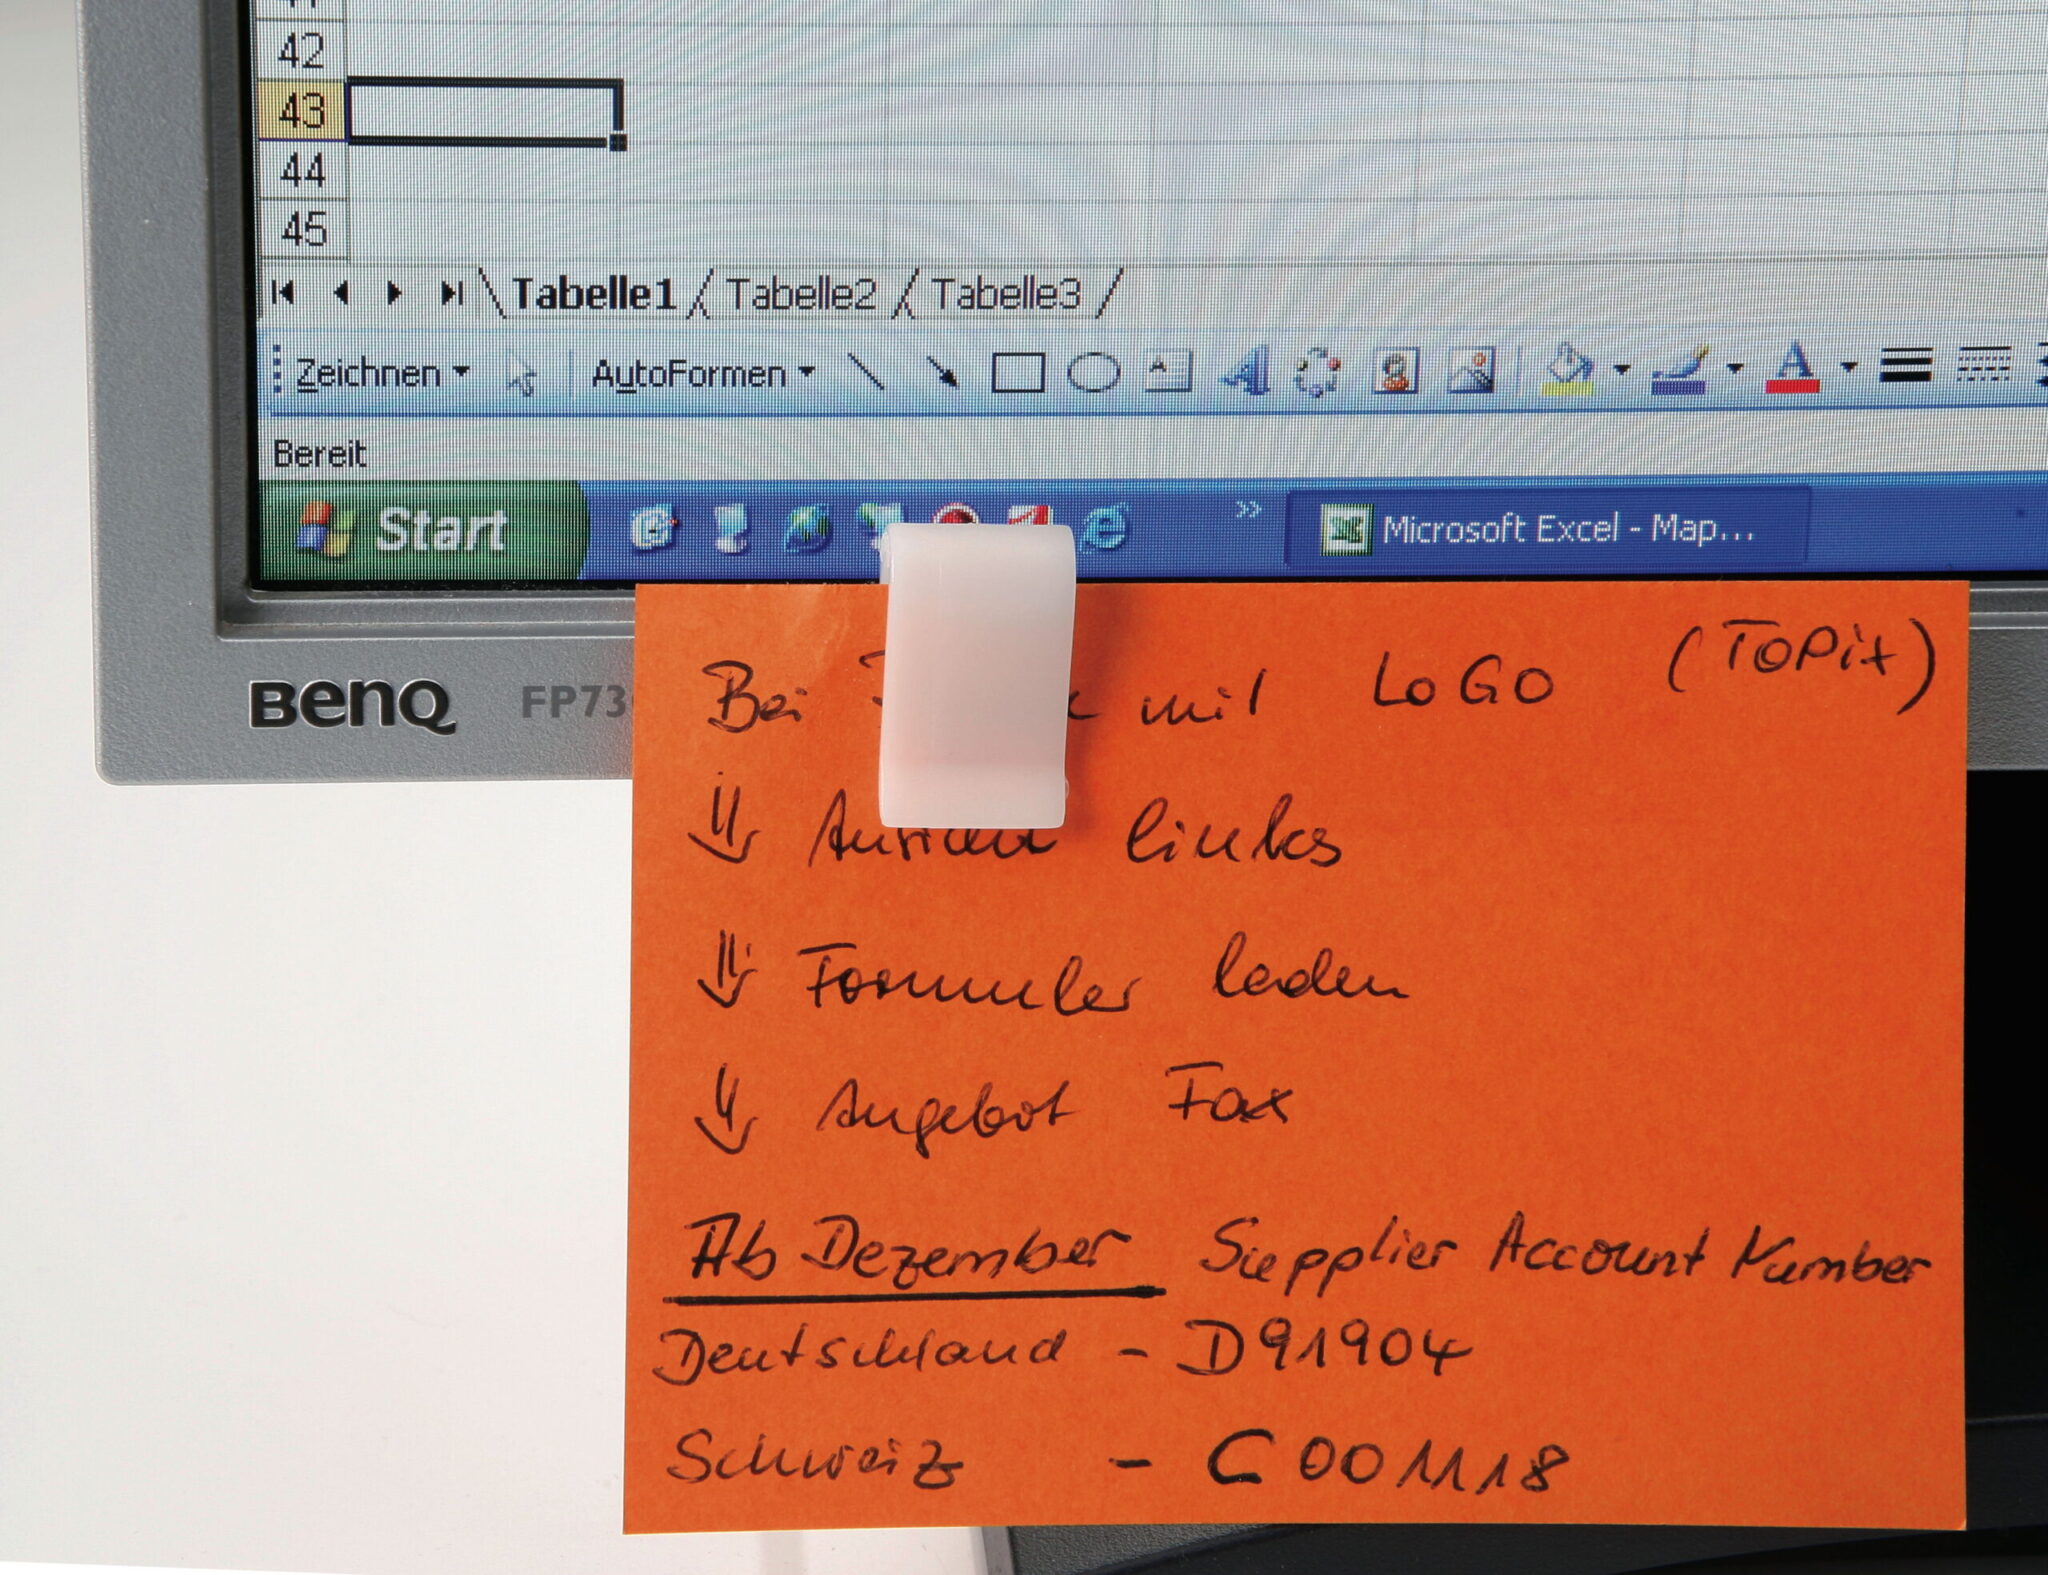 42
43
44
45
Tabelle1 Tabelle2 Tabelle3
Zeichnen AutoFormen
Bereit
Start Microsoft Excel - Map...
BenQ FP73
Bei mit LOGO (TOPix)
⇓ Ansicht links
⇓ Formular laden
⇓ Angebot Fax
Ab Dezember Supplier Account Number
Deutschland - D91904
Schweiz - C001118